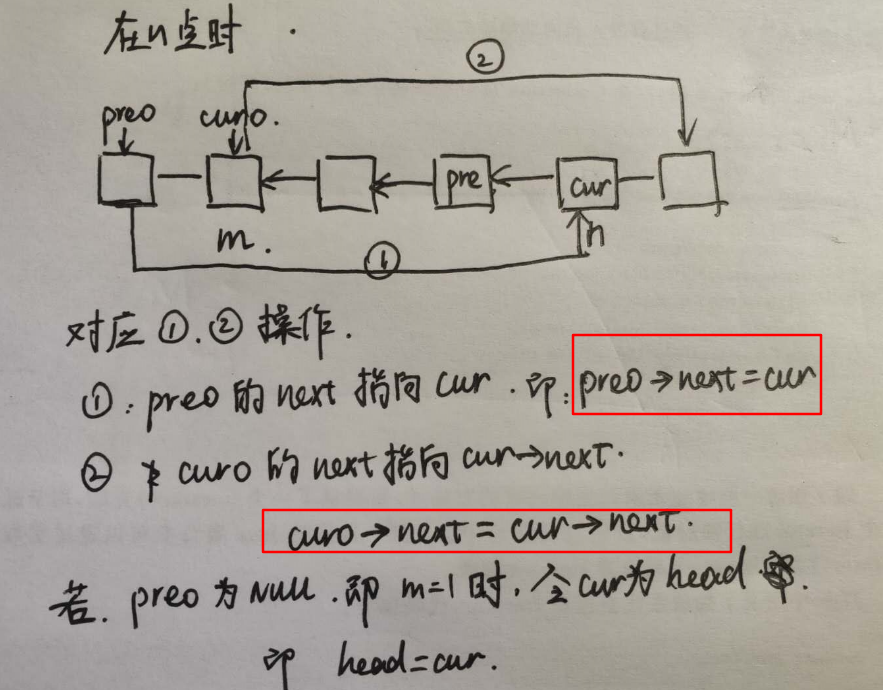 在n点时.
②
preo curo.
pre cur
m. n
①
对应①.②操作.
①:preo的next指向cur.即:preo→next=cur
② curo的next指向cur→next.
curo→next=cur→next.
若.preo为NULL.即m=1时,令cur为head.
即 head=cur.